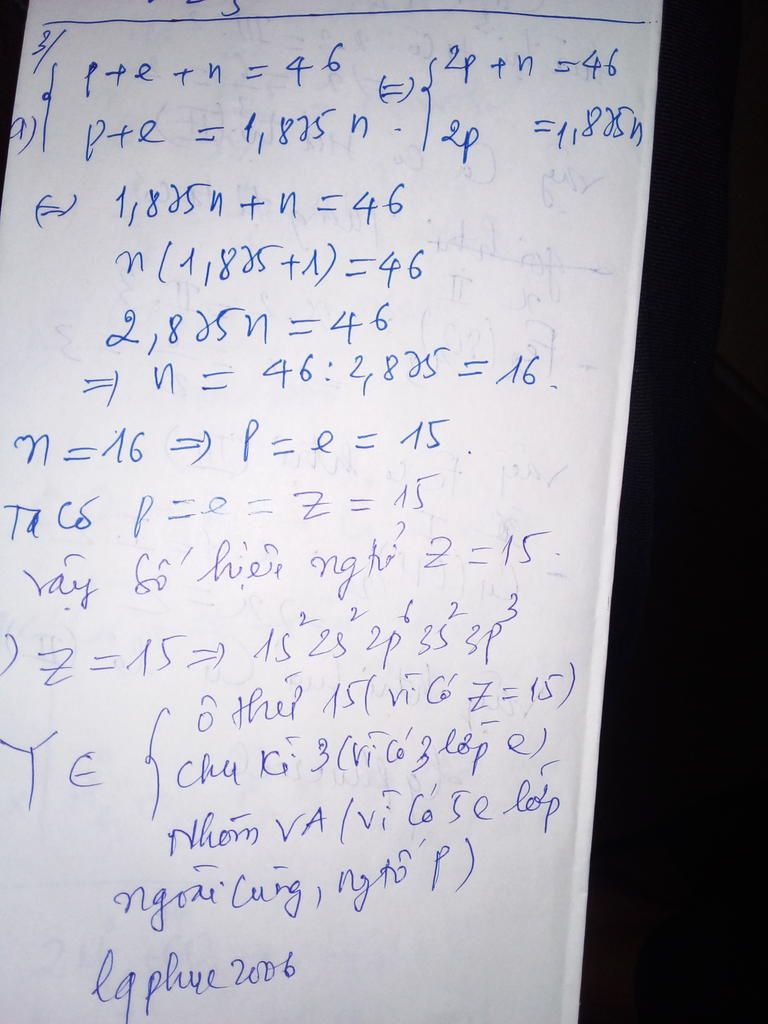 3/
a) { p+e+n = 46 (=) { 2p+n = 46
p+e = 1,875n. 2p = 1,875n
(=) 1,875n + n = 46
n(1,875+1) = 46
2,875n = 46
=> n = 46 : 2,875 = 16.
n = 16 => P = e = 15.
Ta có p = e = Z = 15
vậy số hiệu ngtử Z = 15.
) Z = 15 => 1s² 2s² 2p⁶ 3s² 3p³
Y ∈ { ô thứ 15 (vì có Z = 15)
chu kì 3 (vì có 3 lớp e)
Nhóm VA (vì có 5e lớp
ngoài cùng, ngtố p)
lqphuc2006